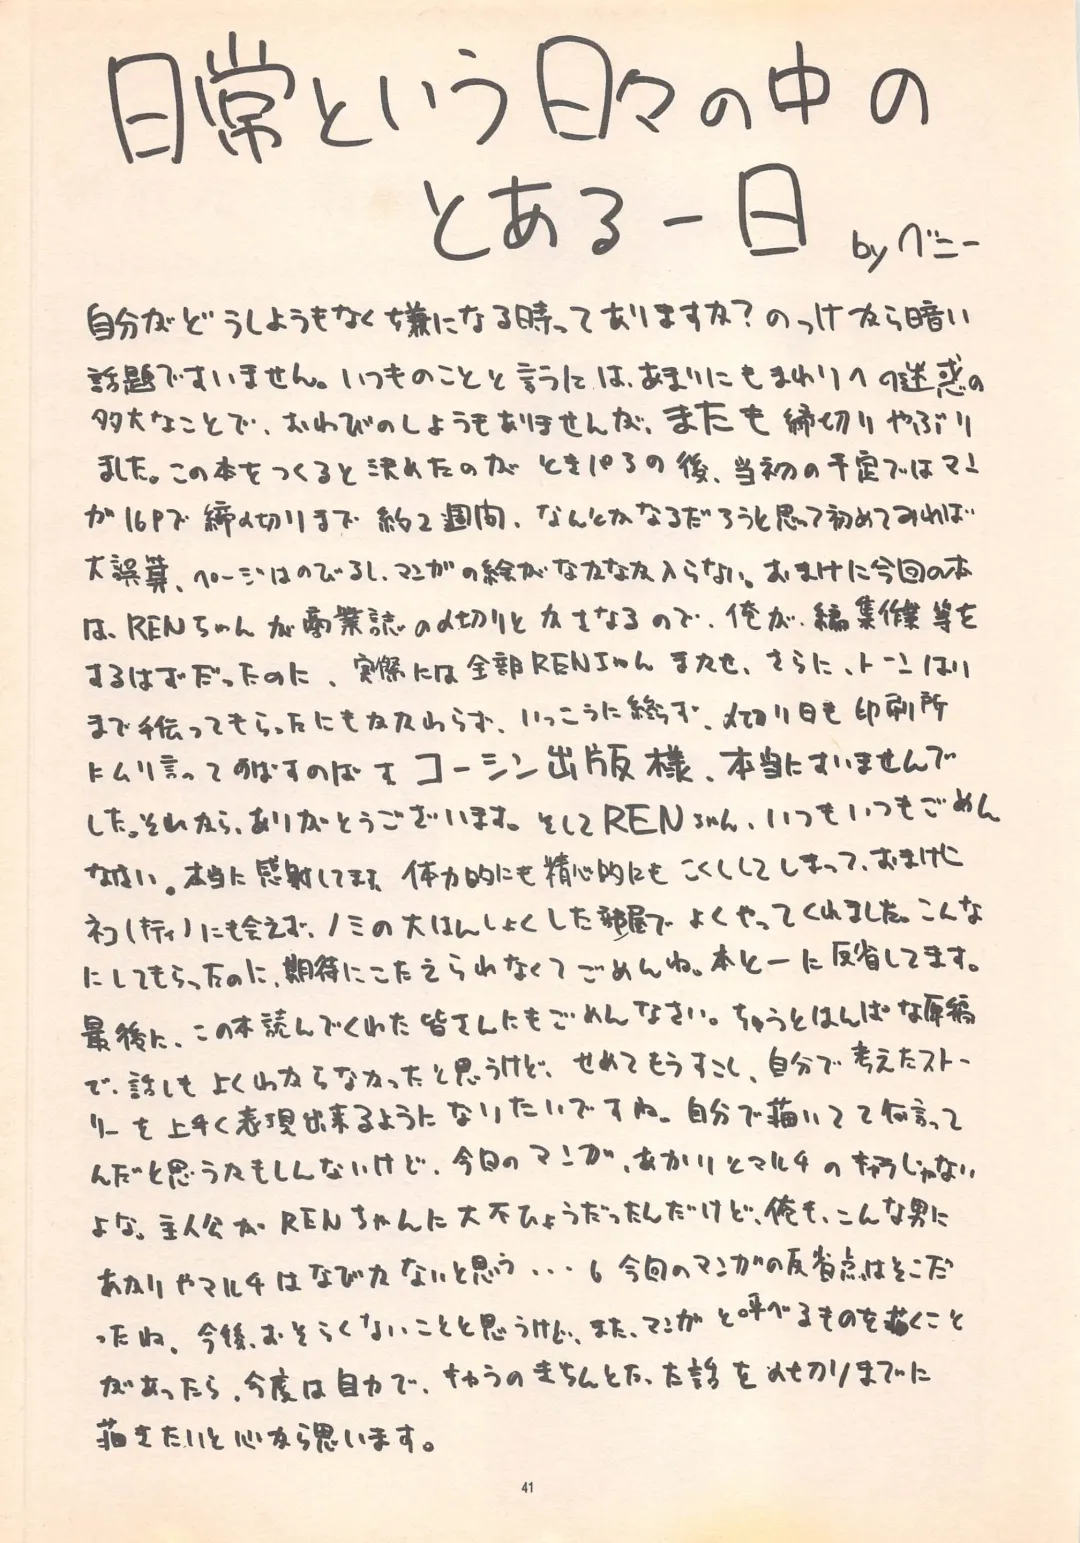 日常という日々の中の
とある一日 by ベニー
自分がどうしようもなく嫌になる時ってありますか?のっけから暗い
話題ですいません。いつものことと言うには、あまりにもまわりへの迷惑の
多大なことで、おわびのしようもありませんが、またも締切りやぶり
ました。この本をつくると決めたのがときパろの後、当初の予定ではマン
が16Pで締〆切りまで約2週間、なんとかなるだろうと思って初めてみれば
大誤算、ページはのびるし、マンガの絵がなかなか入らない。おまけに今回の本
は、RENちゃんが商業誌の〆切りとかさなるので、俺が、編集作業等を
するはずだったのに、実際には全部RENちゃんまかせ、さらに、トーンはり
まで手伝ってもらったにもかかわらず、いっこうに終らず、〆切り日も印刷所
にムリ言ってのばすのばす コーシン出版様、本当にすいませんで
した。それから、ありがとうございます。そしてRENちゃん、いつもいつもごめん
なさい。本当に感射してます 体力的にも精心的にもこくししてしまって、おまけに
ネコ(キティ)にも会えず、ノミの大はんしょくした部屋でよくやってくれました。こんな
にしてもらったのに、期待にこたえられなくてごめんね。本と一に反省してます。
最後に、この本読んでくれた皆さんにもごめんなさい。ちゅうとはんぱな原稿
で、話しもよくわからなかったと思うけど、せめてもうすこし、自分で考えたストー
リーを上手く表現出来るようになりたいですね。自分で描いてて何言って
んだと思うかもしんないけど、今日のマンガ、あかりとマルチのキャラじゃない
よな。主人公がRENちゃんに大不ひょうだったんだけど、俺も、こんな男に
あかりやマルチはなびかないと思う・・・。今回のマンガの反省点はそこだ
ったね。今後、おそらくないことと思うけど、また、マンガと呼べるものを描くこと
があったら、今度は自力で、キャラのきちんとたった話を〆切りまでに
描きたいと心から思います。
41